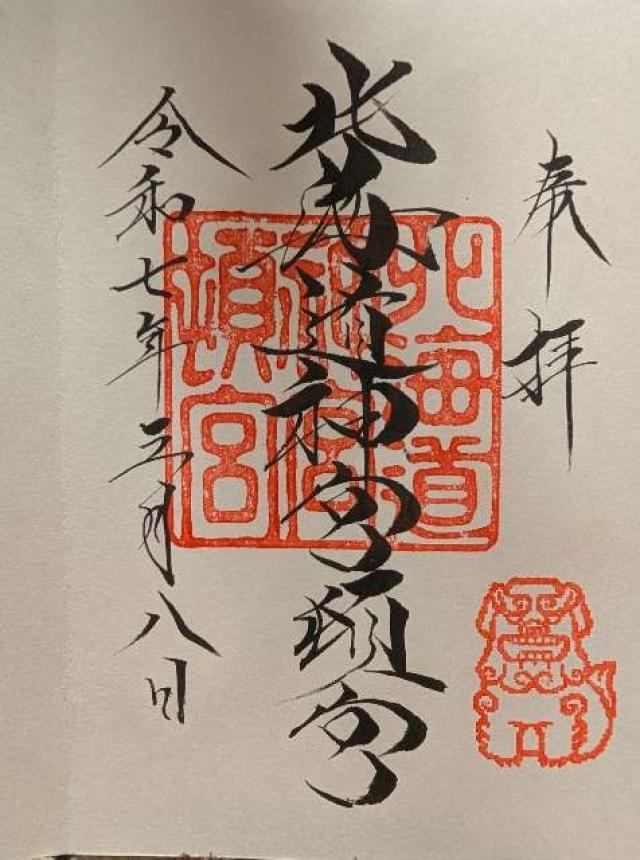 奉拝
北海道神宮頓宮
北海道
神宮
頓宮
令和七年三月八日